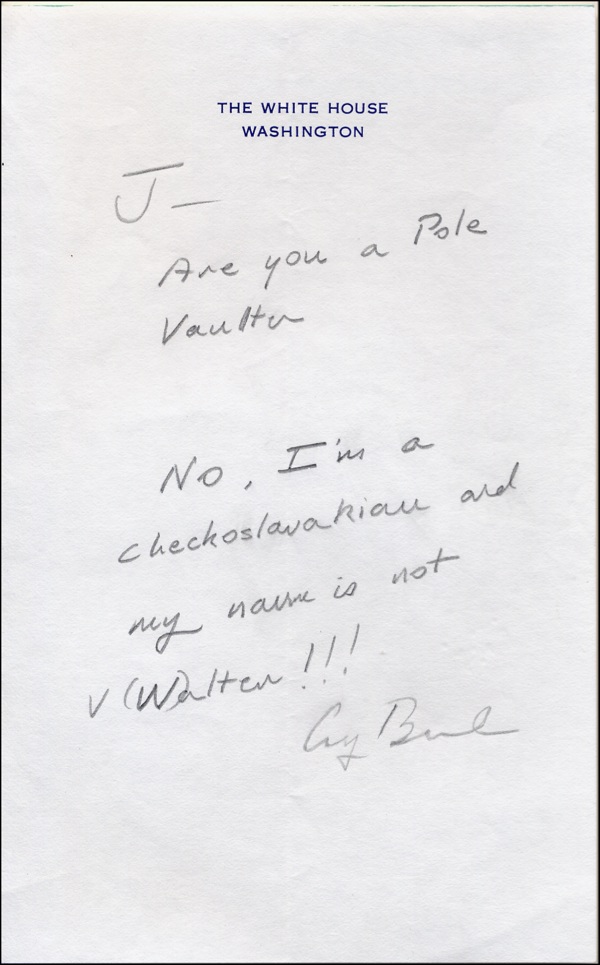 THE WHITE HOUSE
WASHINGTON
J—
Are you a Pole
Vaulter
No, I'm a
checkoslavakian and
my name is not
v(W)alter!!!